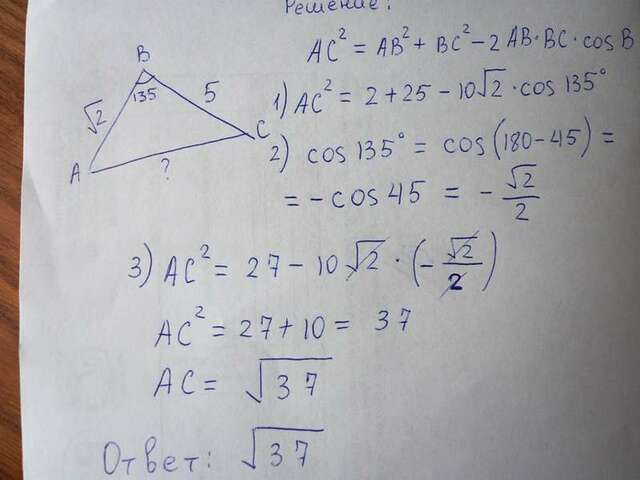 Решение:
AC² = AB² + BC² - 2 AB · BC · cos B
B
135
√2
5
A
C
?
1) AC² = 2 + 25 - 10√2 · cos 135°
2) cos 135° = cos (180 - 45) =
= - cos 45 = - √2/2
3) AC² = 27 - 10 √2 · (- √2/2)
AC² = 27 + 10 = 37
AC = √37
Ответ: √37